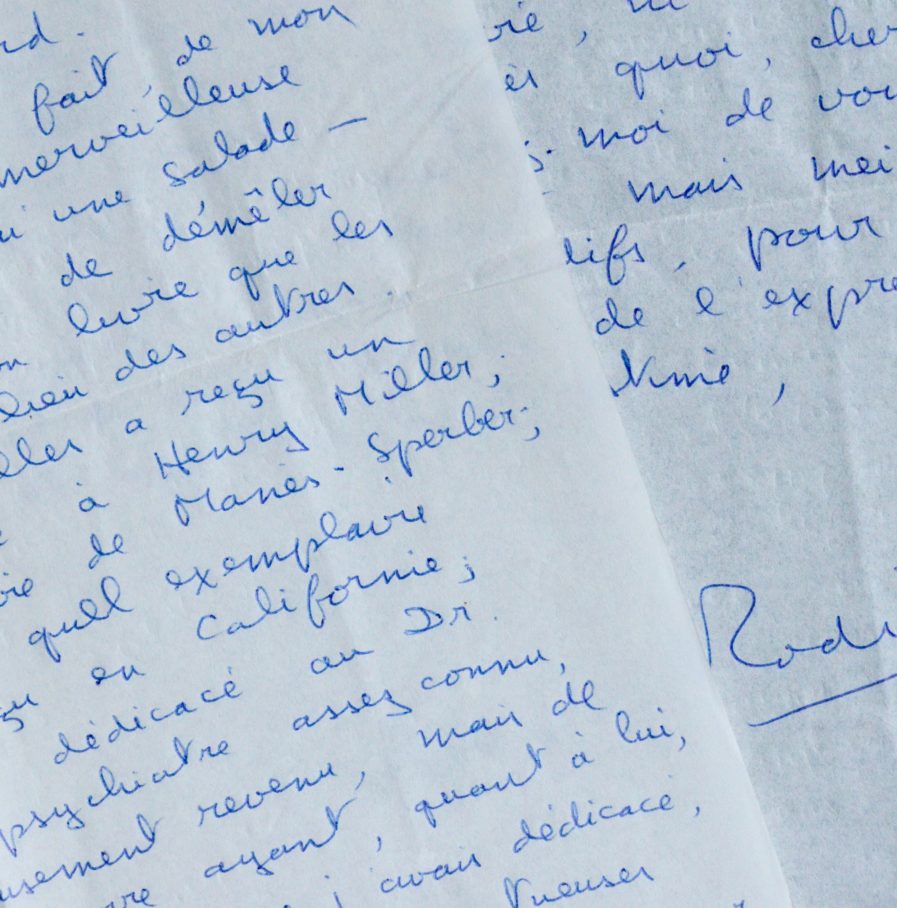 rd.
fait, de mon
merveilleuse
ui une salade –
de démêler
livre que les
lieu des autres.
a reçu un
à Henry Miller;
de Manès-Sperber;
quel exemplaire
en Californie;
dédicacé au Dr.
psychiatre assez connu,
usement revenu, mais de
ayant, quant à lui,
j'avais dédicacé,
tueuses
quoi, cher
moi de vou
mais mei
tifs, pour
de l'expre
timié,
Rodi